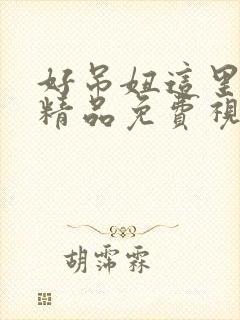 好吊妞這里
精品免費視
胡霈霖